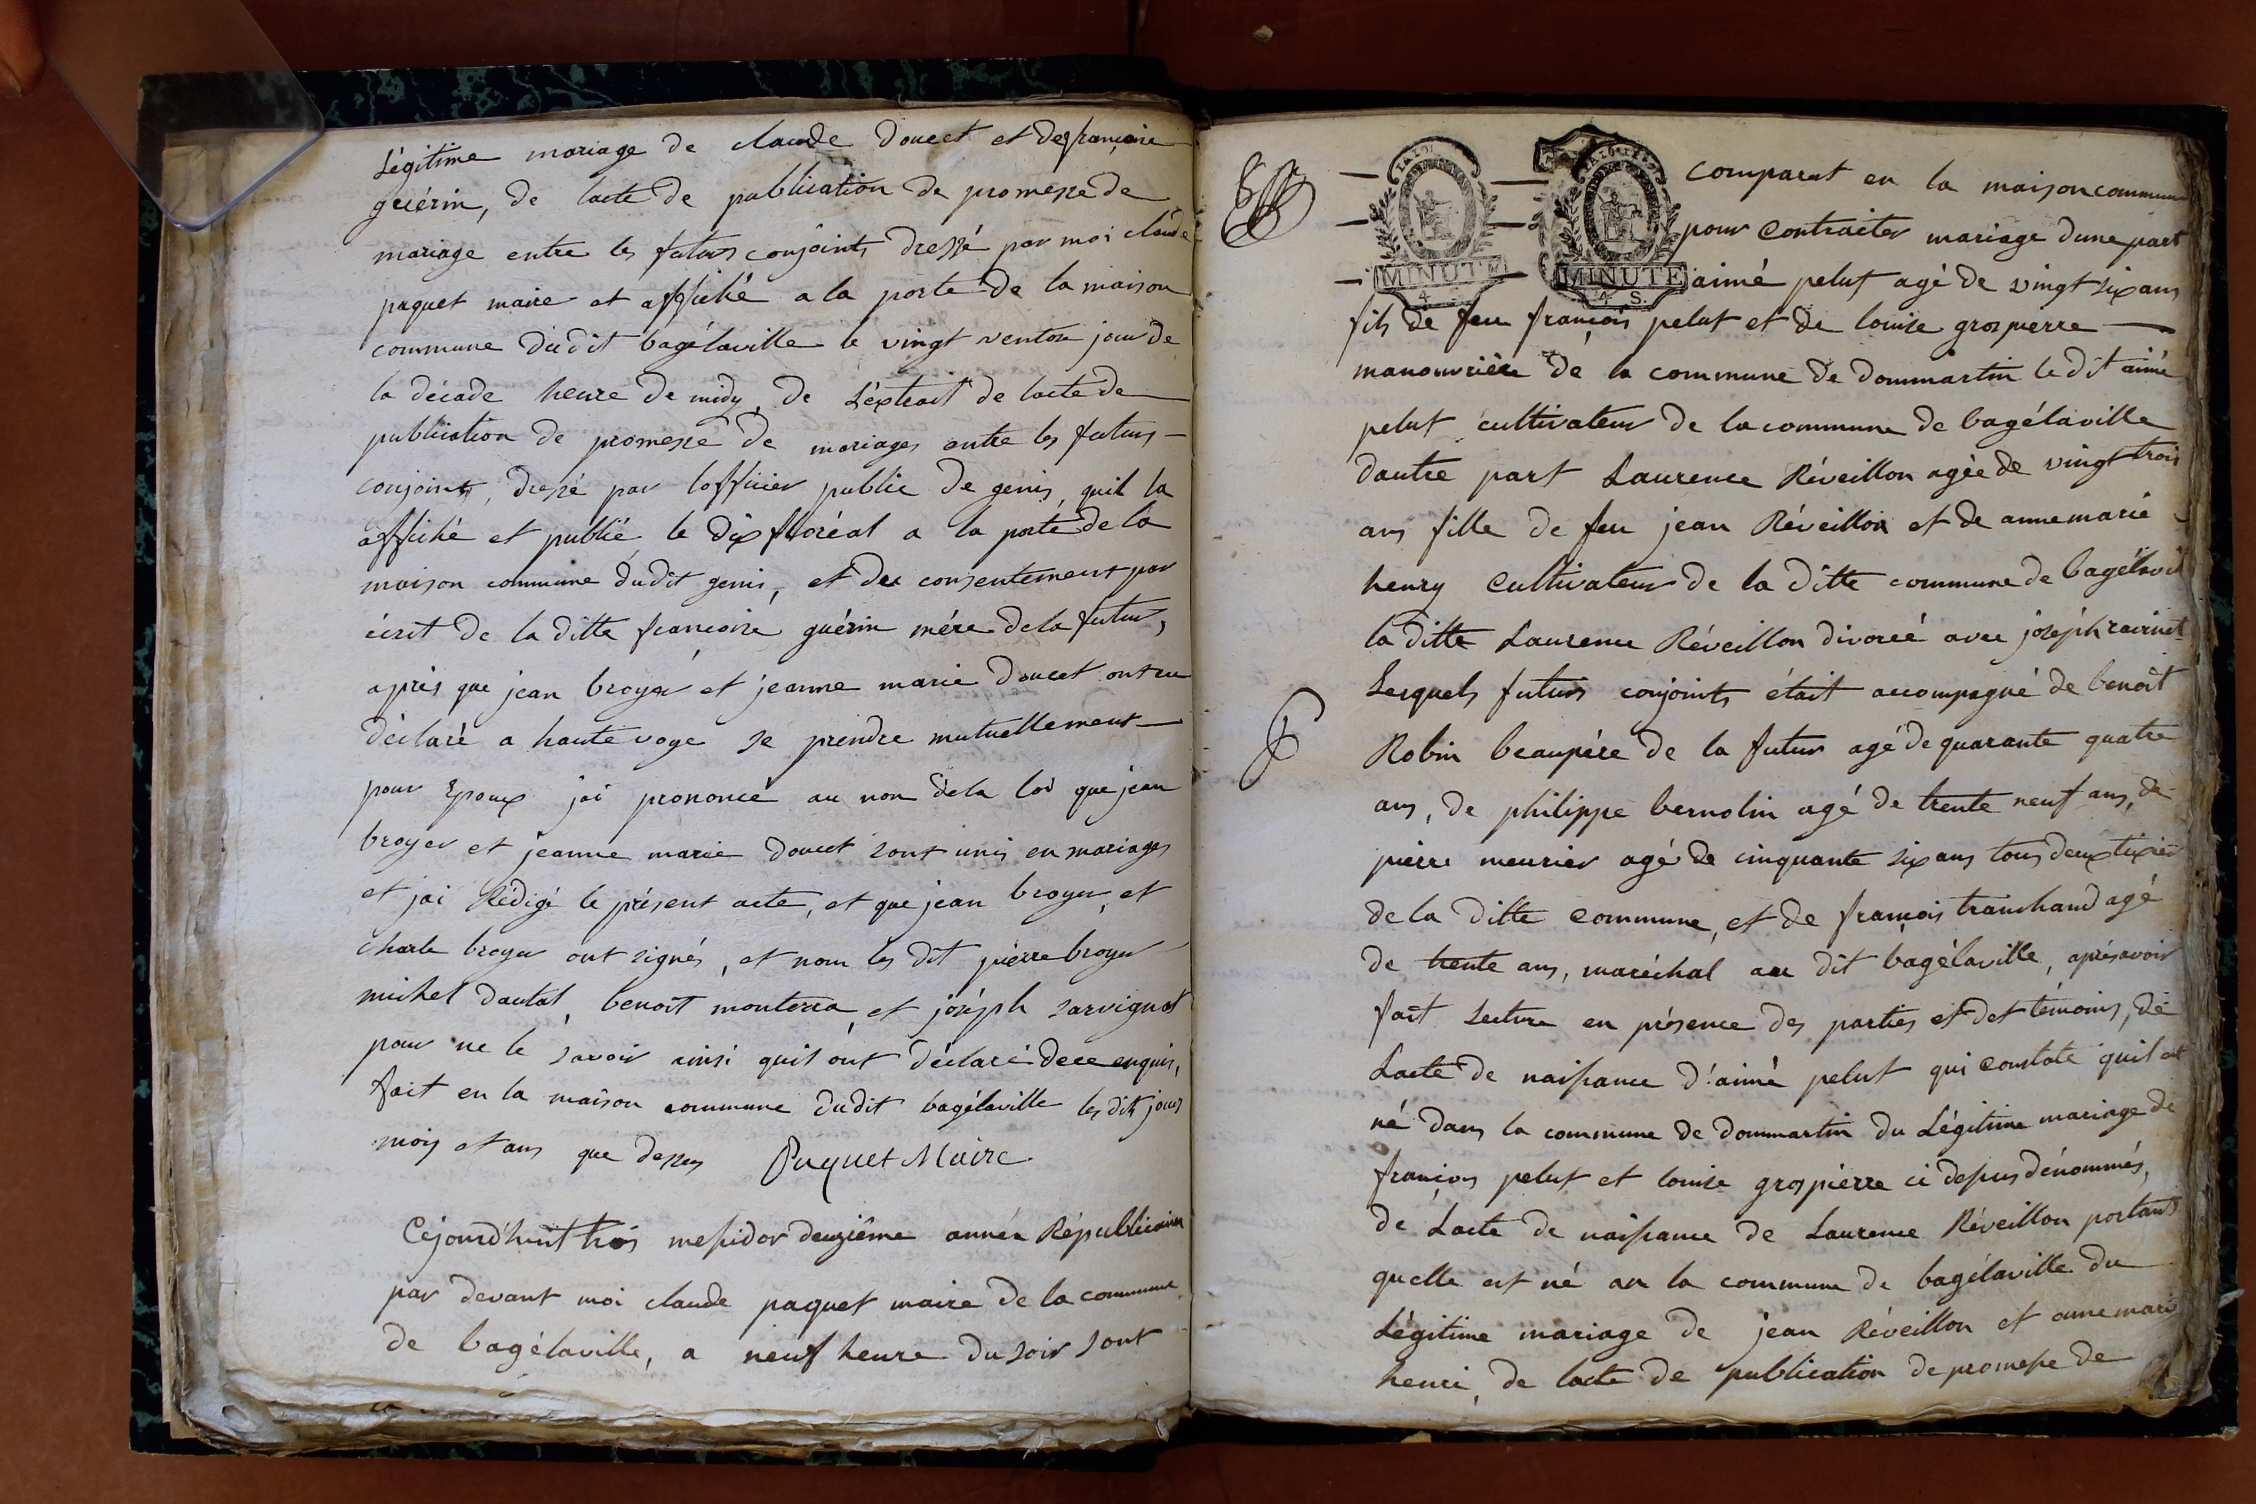 Légitime mariage de claude doucet et de françoise
guérin, de lacte de publication de promesse de
mariage entre les futurs conjoints dressé par moi claude
paquet maire et affiché a la porte de la maison
commune dudit bagélaville le vingt ventose jour de
la décade heure de midy, de L'extrait de lacte de
publication de promesse de mariages entre les futurs
conjoints, dressé par lofficier public de genis, quil la
affiché et publié le dix floréal a la porte de la
maison commune dudit genis, et du consentement par
écrit de la ditte francoise guérin mére de la futur,
après que jean broyer et jeanne marie doucet ont eu
déclaré a haute voye se prendre mutuellement
pour Epoux jai prononcé au non de la loi que jean
broyer et jeanne marie doucet sont unis en mariages
et jai Rédigé le présent acte, et que jean broyer, et
charle broyer ont signés, et nom les dit pièrre broyer
michel dautal, benoit monterra, et joséph sarvignat
pour ne le savoir ainsi quil ont déclaré de ce enquis,
fait en la maison commune dudit bagélaville les dits jours
mois et ans que dessus Paquet Maire
Cejourd'huit trois messidor deuzième année Républicaine
par devant moi claude paquet maire de la commune
de bagélaville, a neuf heure du soir sont
comparut en la maison commune
pour Contracter mariage dune part
MINUTE MINUTE aimé pelut agé de vingt six ans
4 S.
fils de feu françois pelut et de louise grospierre
manouvrière de la commune de dommartin le dit aimé
pelut cultivateur de la commune de bagélaville
dautre part Laurence Réveillon agée de vingt trois
ans fille de feu jean Réveillon et de anne marie
henry Cultivateur de la ditte commune de bagélavil
la ditte Laurence Réveillon divorcé avec joséph
Lesquels futurs conjoints était accompagné de benoît
Robin beaupére de la futur agé de quarante quatre
ans, de philippe bernolin agé de trente neuf ans, de
pierre meurier agé de cinquante six ans tous deux tixier
de la ditte commune, et de françois tranchand agé
de trente ans, maréchal au dit bagélaville, après avoir
fait Lecture en présence des parties et det témoins, de
Lacte de naissance d'aimé pelut qui constate quil est
né dans la commune de dommartin du Légitime mariage de
françois pelut et louise grospièrre ci dessus dénommés,
de Lacte de naissance de Laurence Réveillon portant
quelle est né au la commune de bagélaville du
Légitime mariage de jean Réveillon et anne marie
henri, de lacte de publication de promesse de